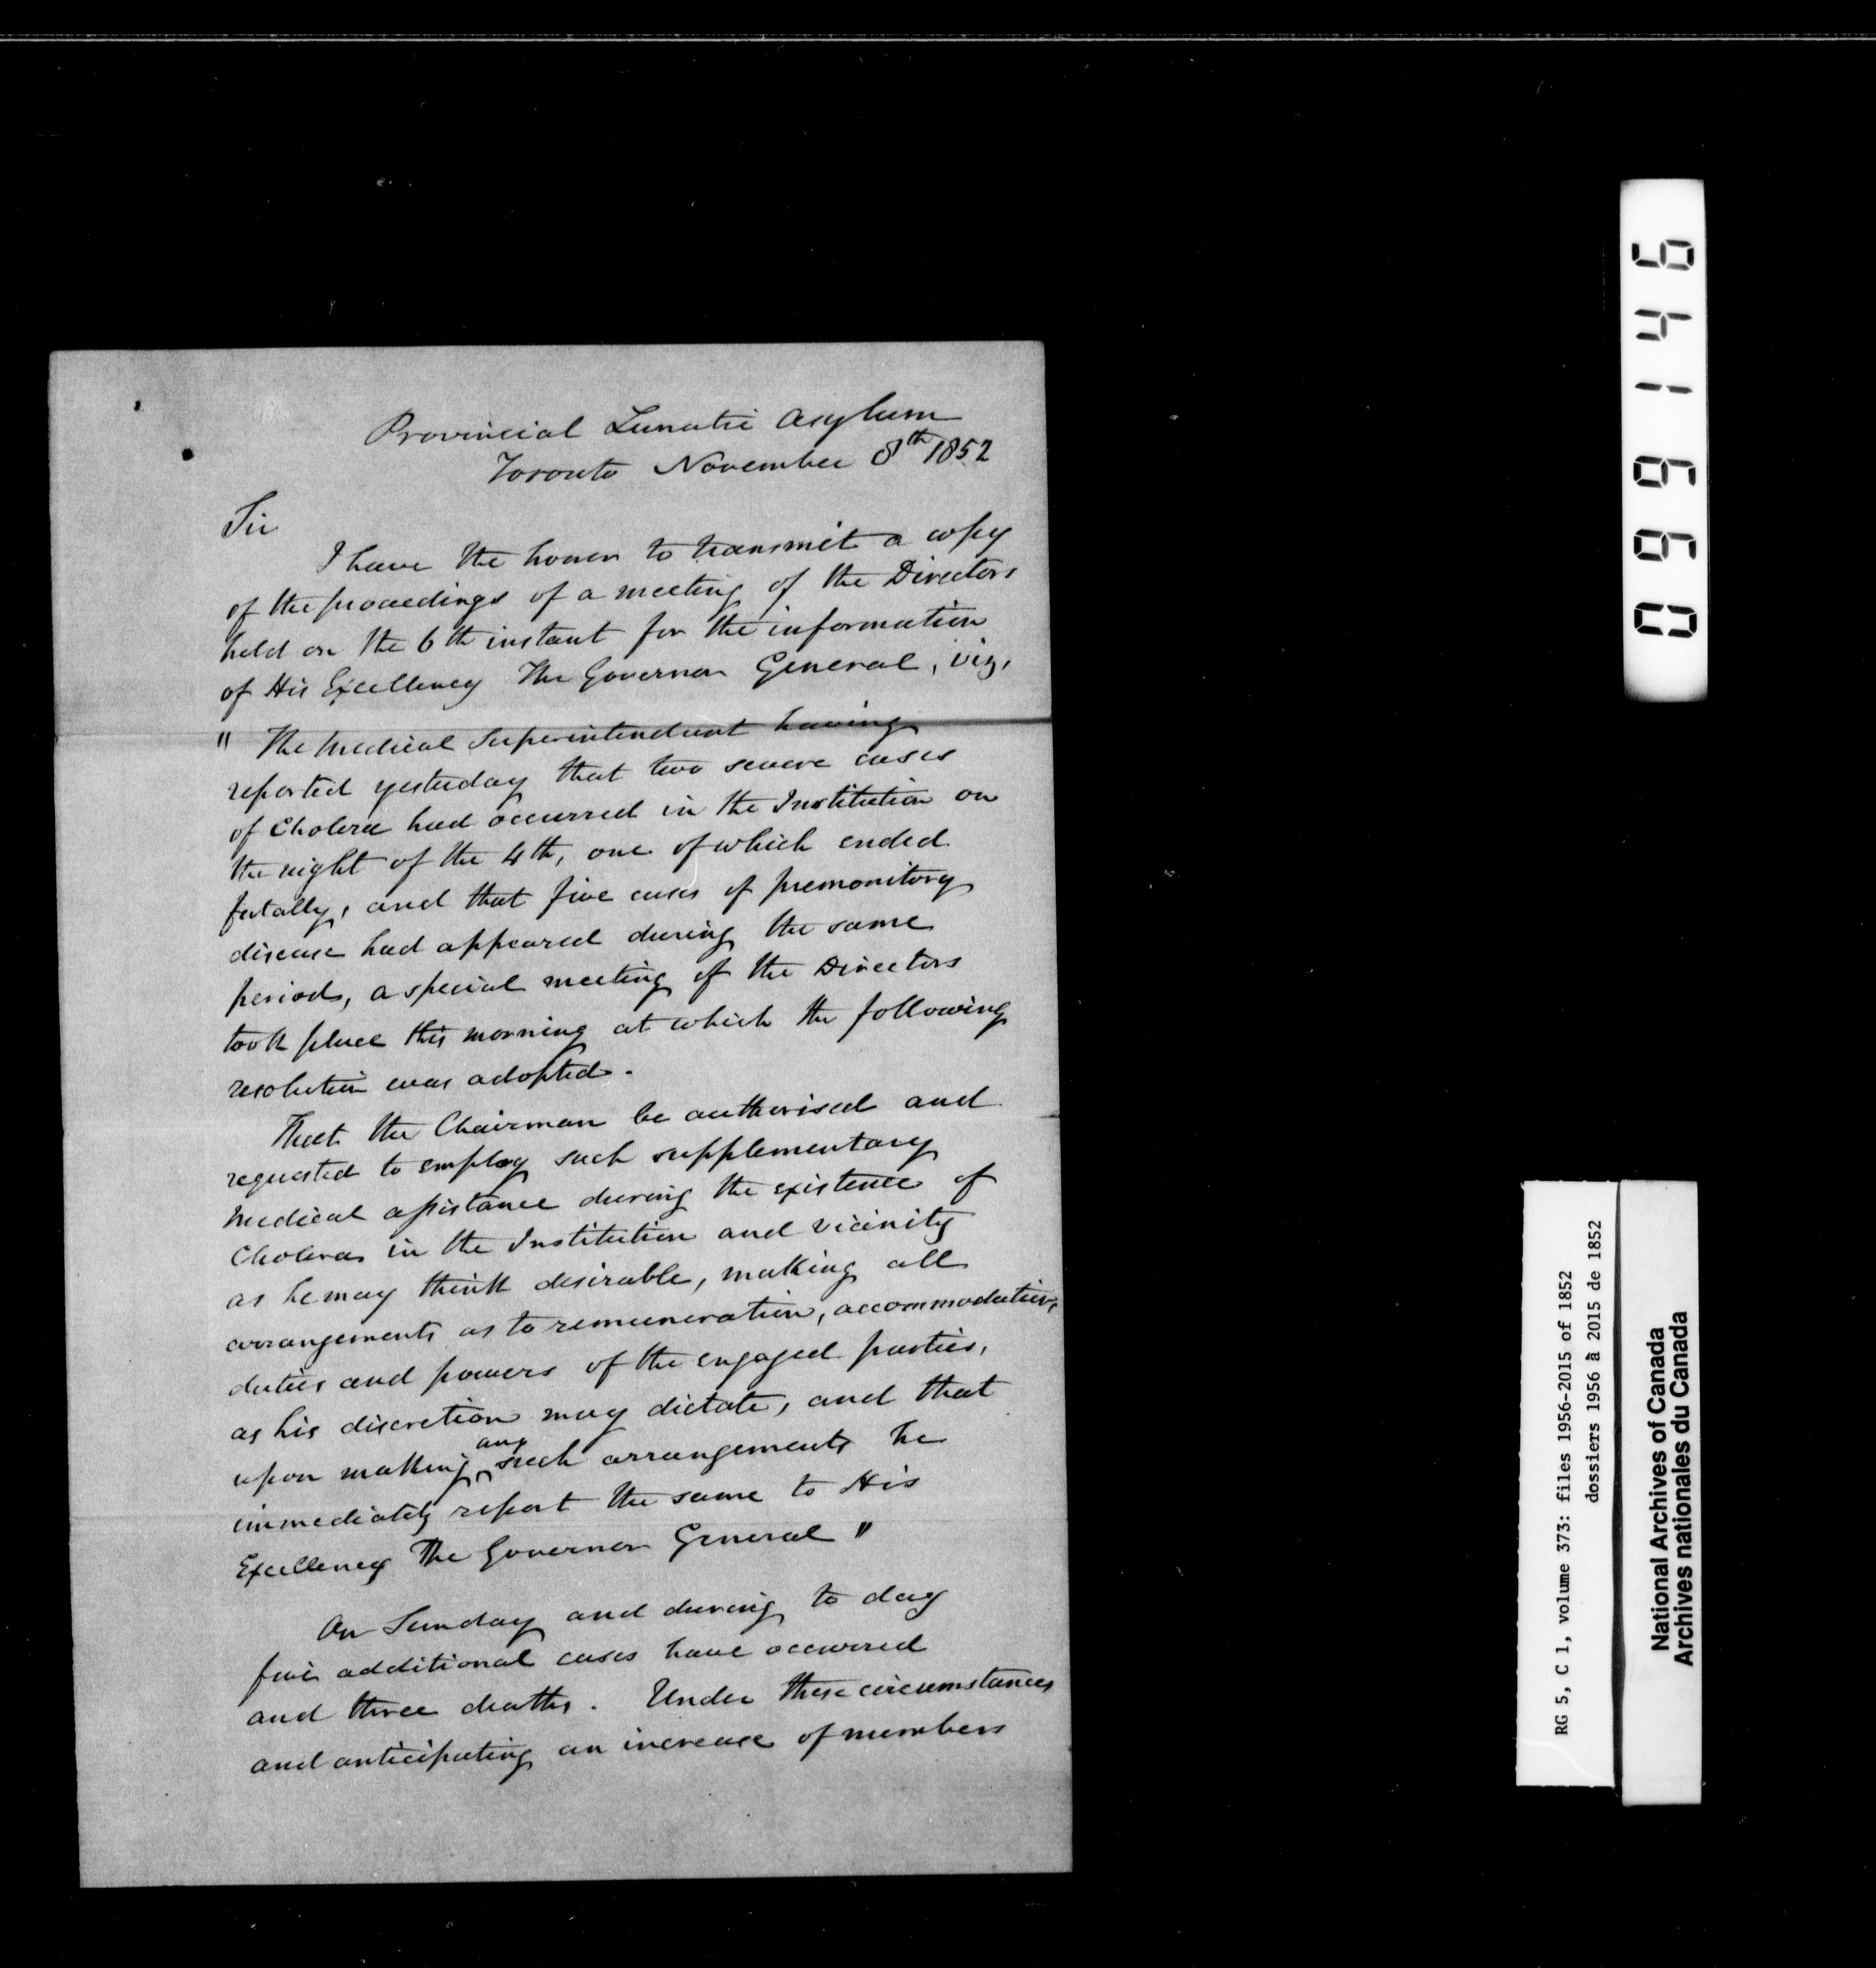 Provincial Lunatic Asylum
Toronto November 8th 1852
Sir
I have the honor to transmit a copy
of the proceedings of a meeting of the Directors
held on the 6th instant for the information
of His Excellency The Governor General, viz,
" The Medical Superintendent having
reported yesterday that two severe cases
of Cholera had occurred in the Institution on
the night of the 4th, one of which ended
fatally, and that five cases of premonitory
disease had appeared during the same
period, a special meeting of the Directors
took place this morning at which the following
resolution was adopted.
That the Chairman be authorised and
requested to employ such supplementary
Medical assistance during the existence of
Cholera in the Institution and vicinity
as he may think desirable, making all
arrangements as to remuneration, accommodation,
duties and powers of the engaged parties,
as his discretion may dictate, and that
upon making any such arrangements he
immediately report the same to His
Excellency The Governor General "
On Sunday and during to day
five additional cases have occurred
and three deaths. Under these circumstances
and anticipating an increase of numbers
099146
RG 5, C 1, volume 373: files 1956-2015 of 1852
dossiers 1956 à 2015 de 1852
National Archives of Canada
Archives nationales du Canada